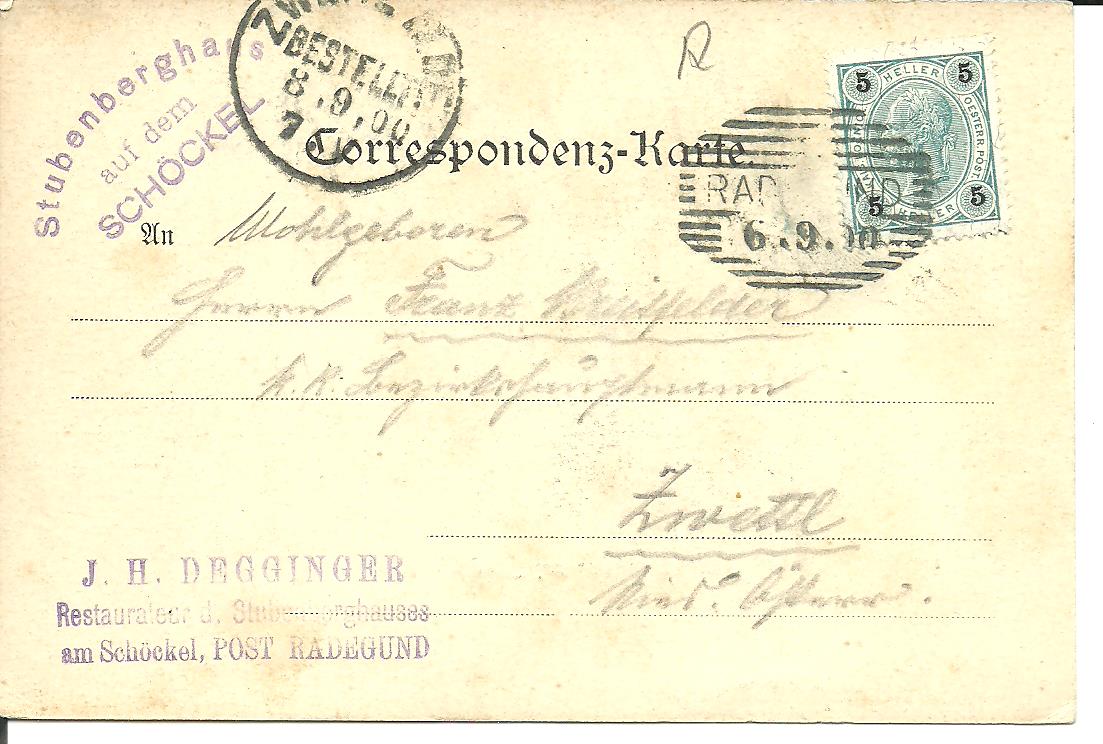 Stubenberghaus
auf dem
SCHÖCKEL
BESTELLT
8.9.00
7
R
5 HELLER 5
OESTERR. POST.
5 HELLER 5
Correspondenz-Karte.
RAD ND
6.9.00
An Wohlgeboren
Herrn Franz
k. k. Bezirkshauptmann
Zwettl
Nied. Österr.
J. H. DEGGINGER
Restaurateur d. Stubenberghauses
am Schöckel, POST RADEGUND